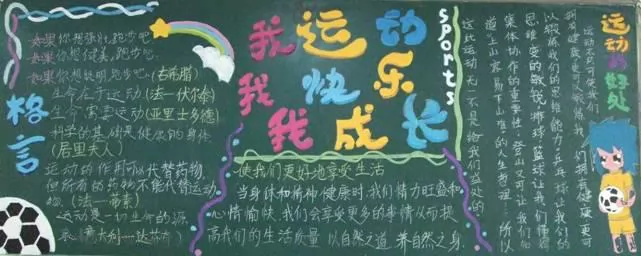 格言
如果你想强壮,跑步吧
如果你想健美,跑步吧
如果你想聪明,跑步吧(古希腊)
生命在于运动(法一伏尔泰)
生命需要运动(亚里士多德)
科学的基础是健康的身体
(居里夫人)
运动的作用可以代替药物,
但所有的药物不能代替运动
物.(法一蒂素)
运动是一切生命的源
泉(意大利——达芬奇)
我运动
我快乐
我成长
sports
使我们更好地享受生活
当身体和精神健康时,我们精力旺盛和
心情愉快,我们会享受更多的事情从而提
高我们的生活质量.以自然之道,养自然之身.
运动的好处
运动不只可使我们
拥有健康更可
以锻炼我们的思维能力乒乓球让我们的
思维变的敏锐,排球篮球让我们懂得
集体协作的重要性,登山可以让我们知
道上山容易下山难的人生哲理.所以
这些运动无一不是给我们益处的